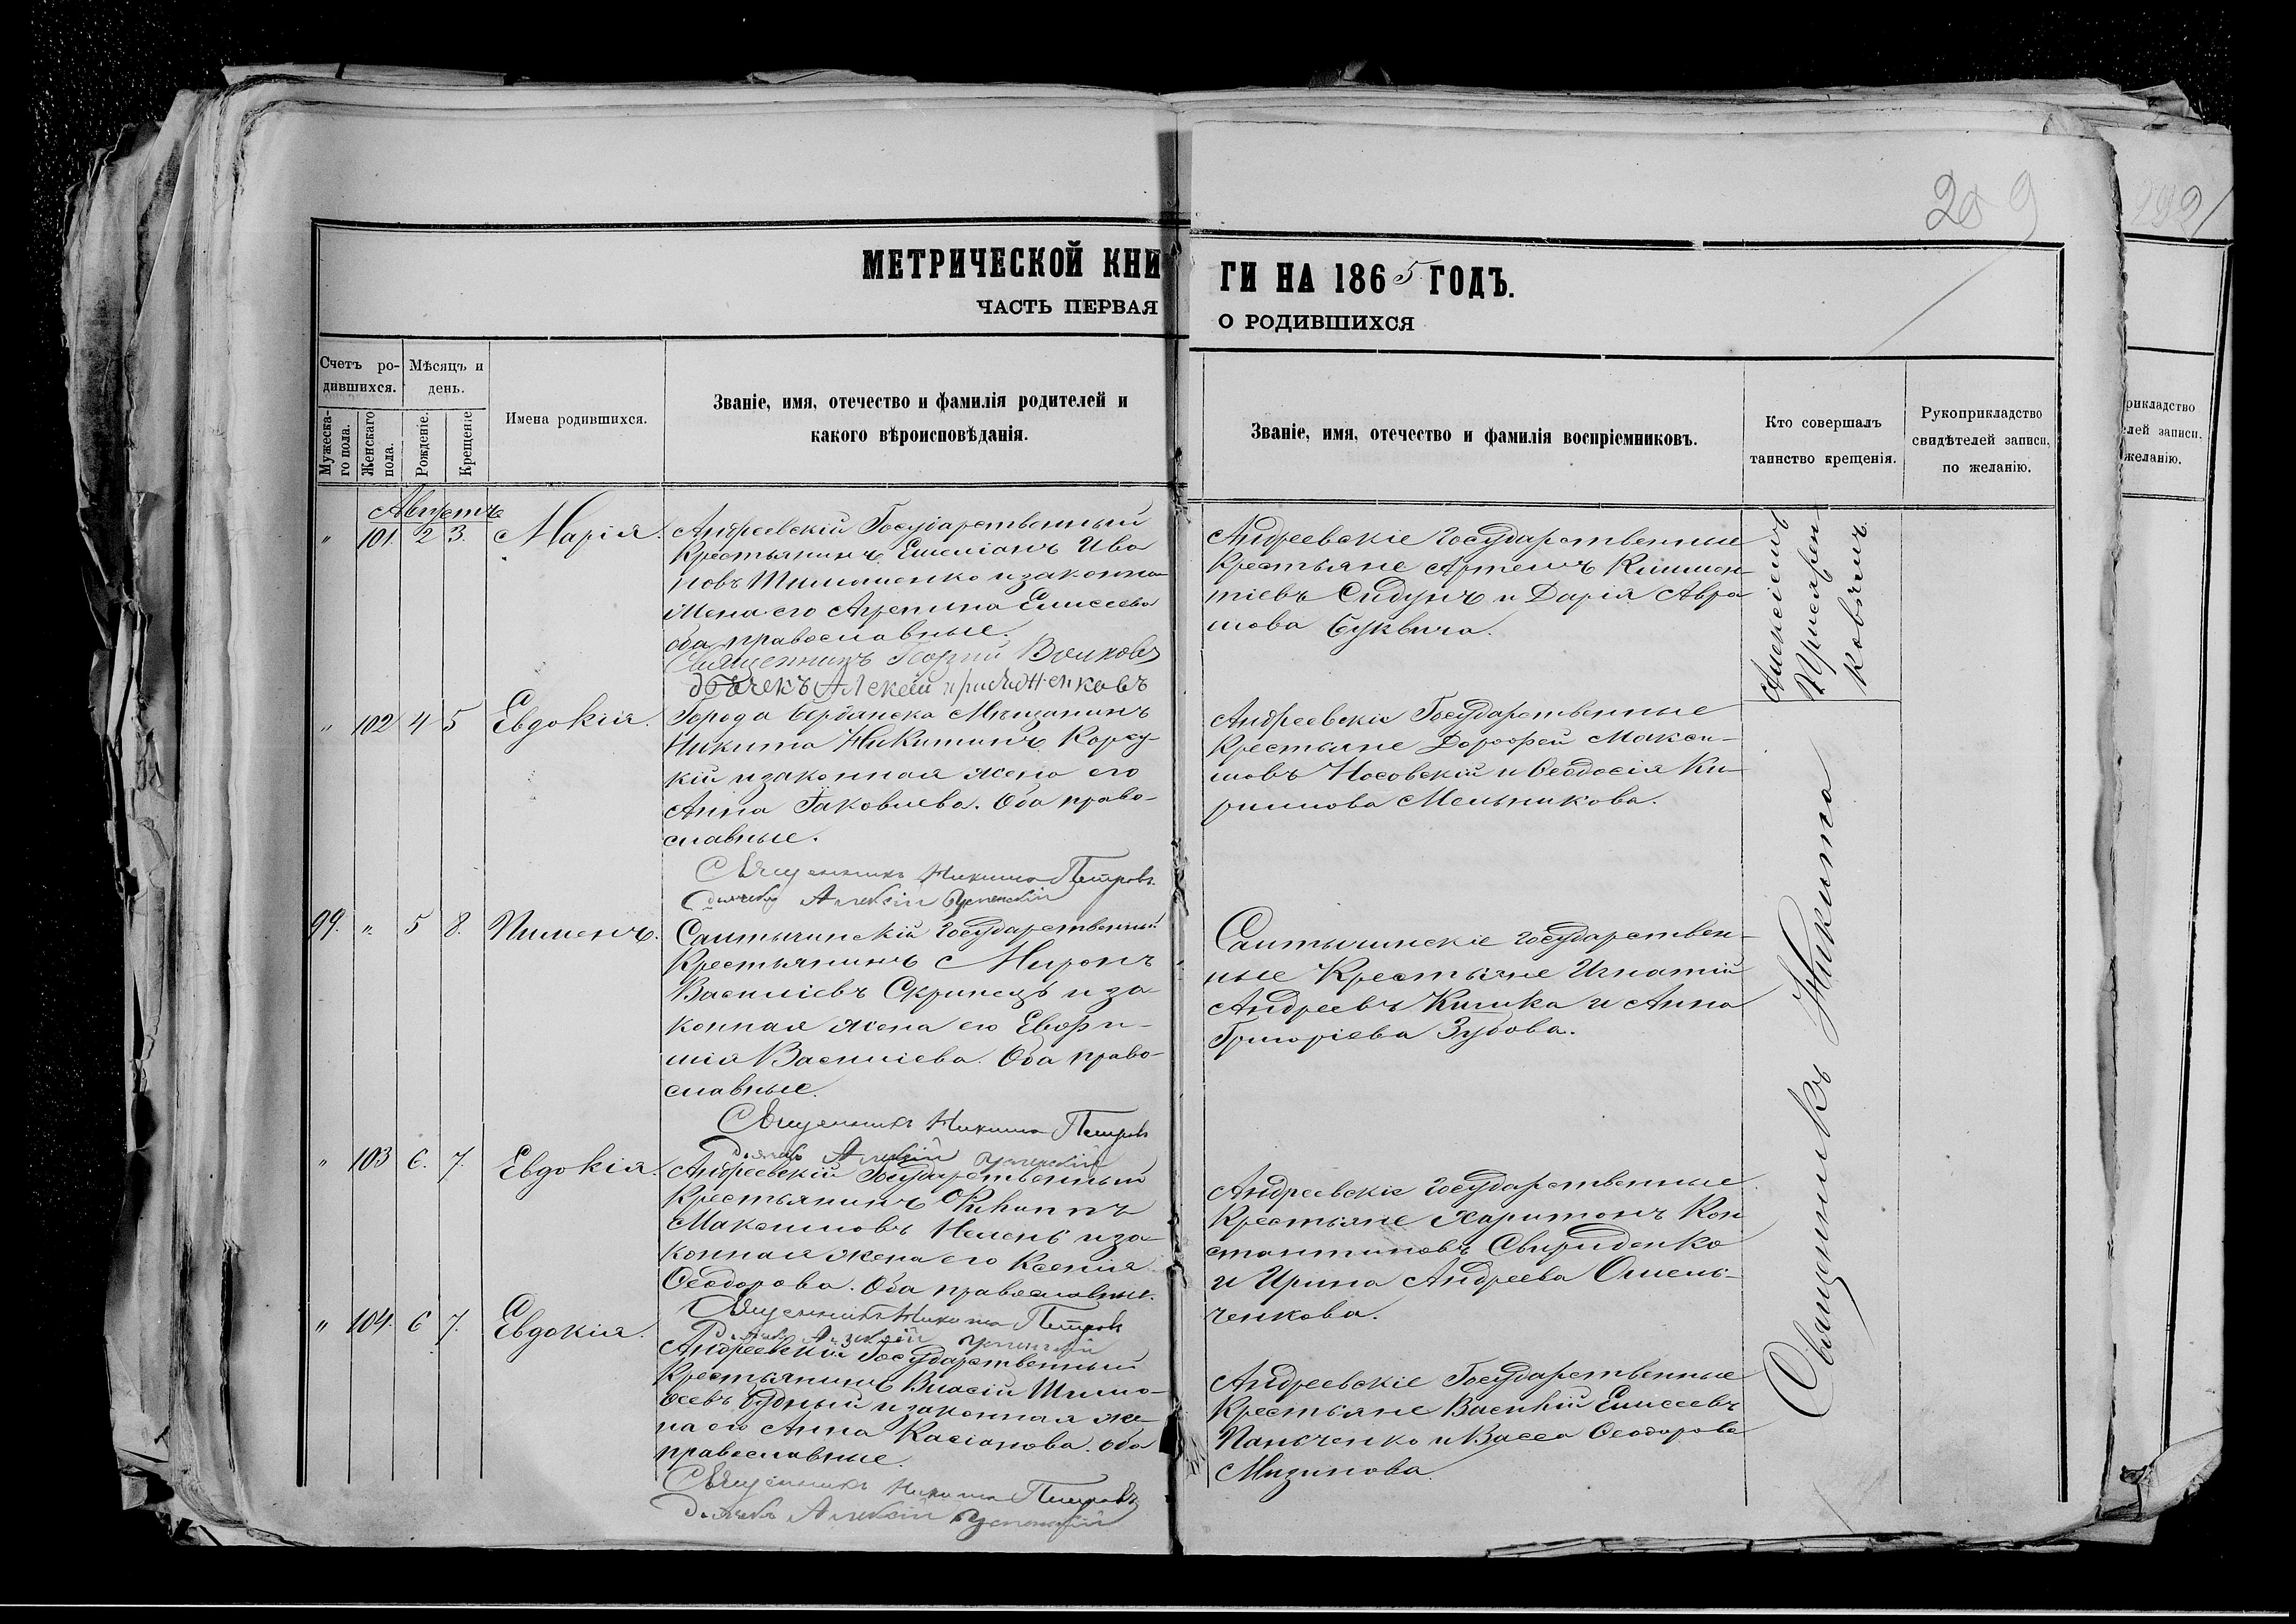 209
292
МЕТРИЧЕСКОЙ КНИ
ГИ НА 1865 ГОДЪ.
ЧАСТЬ ПЕРВАЯ
О РОДИВШИХСЯ
Счетъ ро-
дившихся.
Мѣсяцъ и
день.
Мужеска-
го пола.
Женскаго
пола.
Рожденіе.
Крещеніе
Имена родившихся.
Званіе, имя, отечество и фамилія родителей и
какого вѣроисповѣданія.
Званіе, имя, отечество и фамилія воспріемниковъ.
Кто совершалъ
таинство крещенія.
Рукоприкладство
свидѣтелей записи,
по желанію.
рикладство
лей записи,
желанію.
Августъ
" 101. 2 3. Марія.
Андреевскій Государственный
Крестьянинъ Емеліанъ Ива
новъ Тимошенко и законная
жена его Агрепина Елисеева
оба православные.
Священникъ Георгій Волковъ
дьячекъ Алексѣй
Андреевскіе Государственные
Крестьяне Артемъ Климен-
тіевъ Сидунъ и Дарія Авра
мова Буквича.
" 102 4 5 Евдокія.
Города Бердянска Мѣщанинъ
Никита Никитинъ Корсу-
кій и законная жена его
Анна Іаковлева. Оба право-
славные.
Священникъ Никита Петровъ
Дьячекъ Алексій Успенскій
Андреевскіе Государственные
Крестьяне Дорофей Макси-
мовъ Носовскій и Ѳеодосія Ки-
рилова Мельникова.
99. " 5 8. Пименъ.
Салтычинскій Государственный
Крестьянинъ Миронъ
Василіевъ Скрипецъ и за
конная жена его Евфи-
мія Василіева. Оба право-
славные.
Священникъ Никита Петровъ
Дьячекъ Алексій Успенскій
Салтычинскіе Государствен-
ные Крестьяне Игнатій
Андреевъ Кишка и Анна
Григоріева Зубова.
" 103 6. 7. Евдокія.
Андреевскій Государственный
Крестьянинъ Филиппъ
Максимовъ и за-
конная жена его Ксенія
Ѳеодорова. Оба православные.
Священникъ Никита Петровъ
Дьячекъ Алексій Успенскій
Андреевскіе Государственные
Крестьяне Харитонъ Кон
стантиновъ Свириденко
и Ирина Андреева Омель-
ченкова.
" 104. 6 7. Евдокія.
Андреевскій Государственный
Крестьянинъ Власій Тимо-
ѳеевъ Будный и законная же-
на его Анна Касіанова. оба
православные.
Священникъ Никита Петровъ
Дьячекъ Алексій Успенскій
Андреевскіе Государственные
Крестьяне Василій Елисеевъ
Панченко и Васса Ѳеодорова
Мизинова.
Священникъ Никита